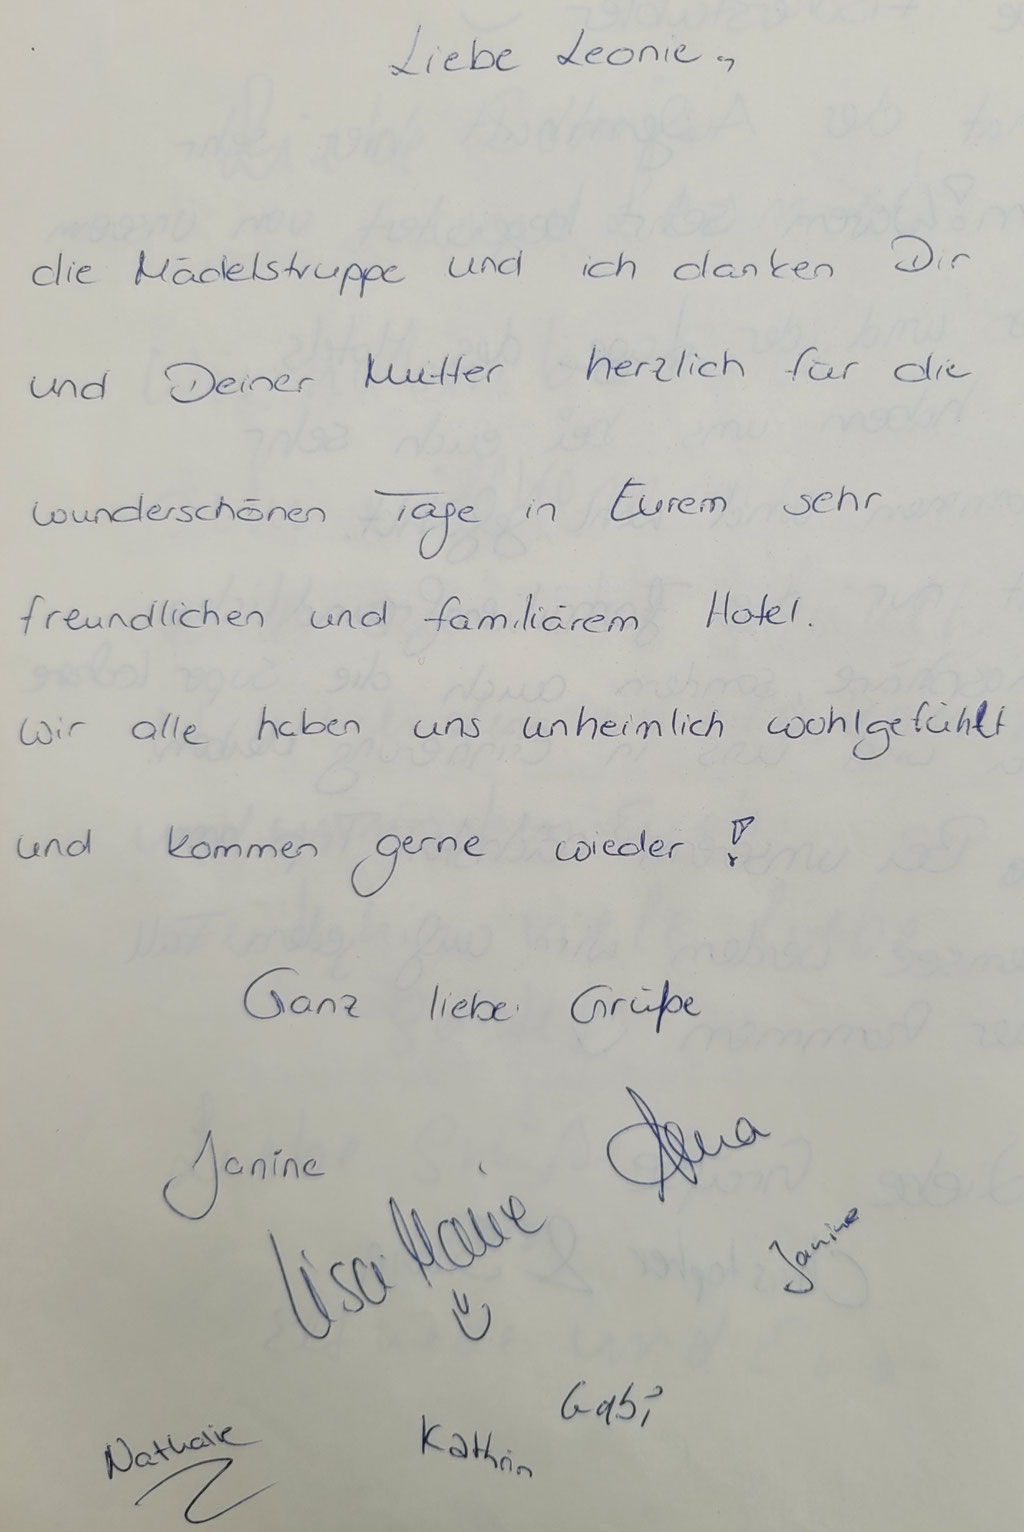 Liebe Leonie,
die Mädelstruppe und ich danken Dir
und Deiner Mutter herzlich für die
wunderschönen Tage in Eurem sehr
freundlichen und familiärem Hotel.
Wir alle haben uns unheimlich wohlgefühlt
und kommen gerne wieder!
Ganz liebe Grüße
Janine
Lisa Marie
Janine
Gabi
Nathalie
Kathrin